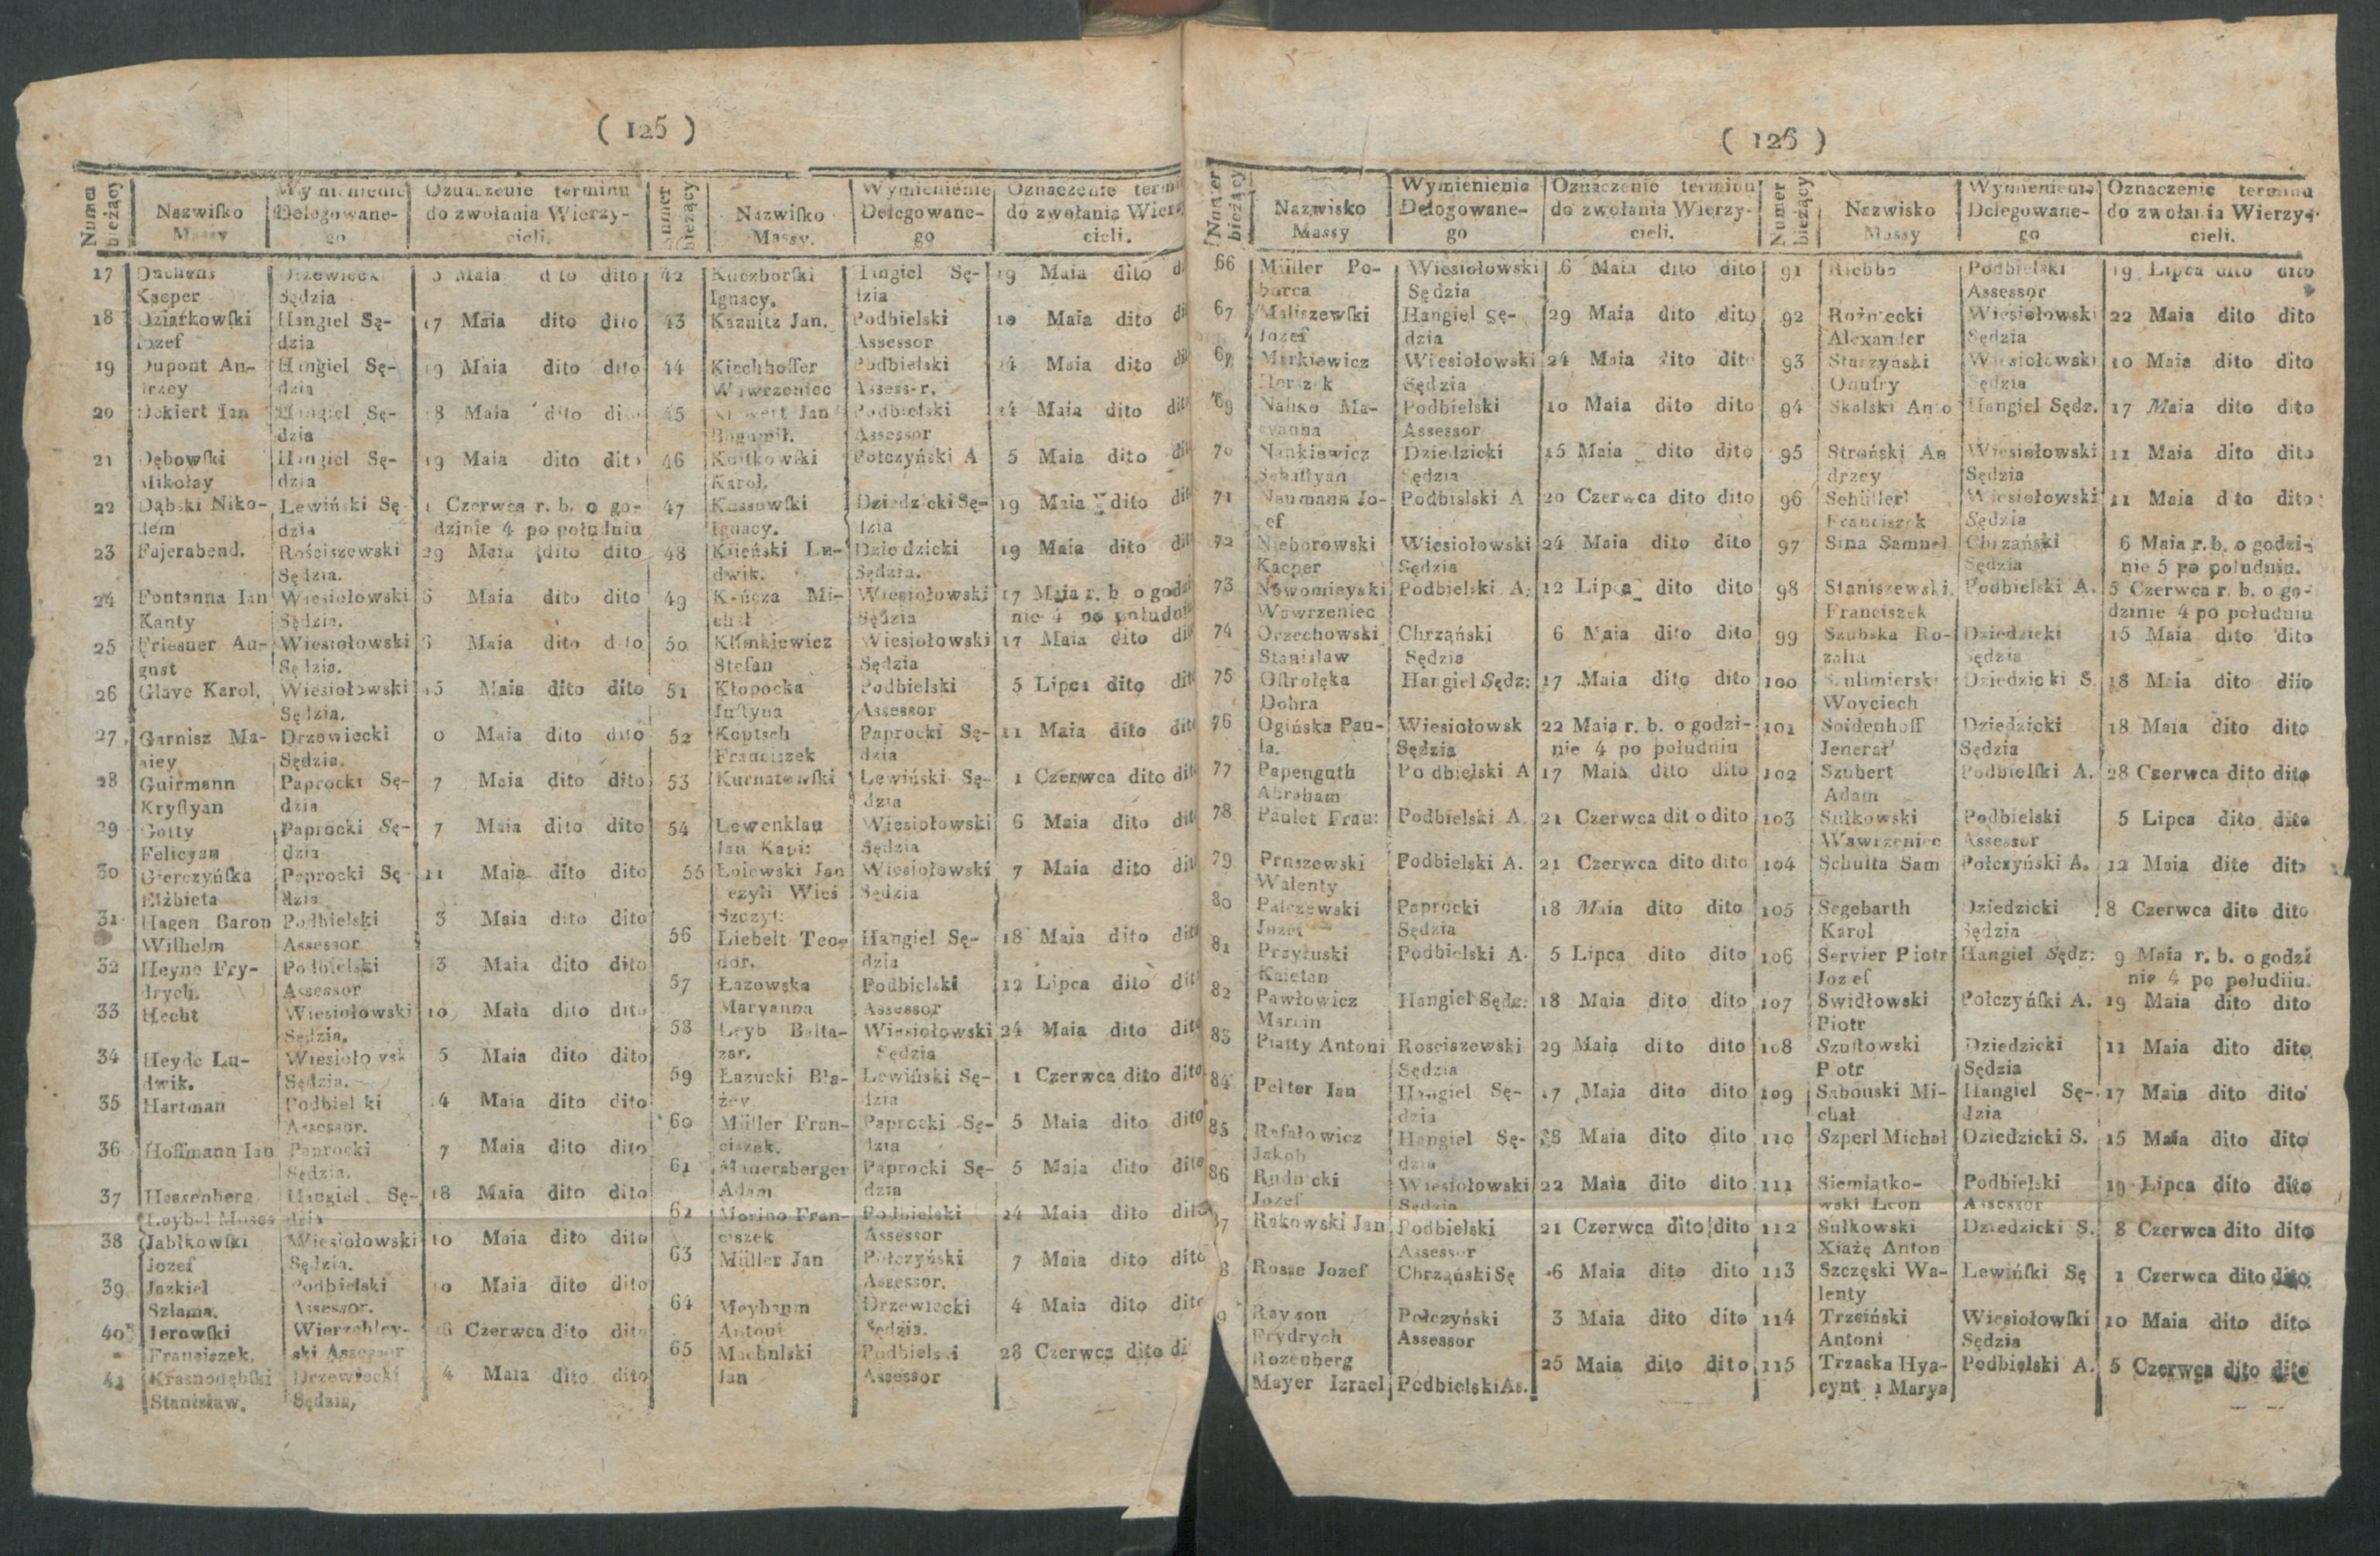 ( 125 )
Numer bieżący
Nazwiſko
Massy
Wymienienie
Delegowane-
go
Oznaczenie terminu
do zwołania Wierzy-
cieli.
17 Duchens Drzewiecki Maia dito dito
Kacper Sędzia
18 Dziarkowſki Hangiel Sę- 17 Maia dito dito
Jozef dzia
19 Dupont An- Hangiel Sę- 19 Maia dito dito
drzey dzia
20 Dekiert Ian Hangiel Sę- 18 Maia dito
dzia
21 Dębowſki Hangiel Sę- 19 Maia dito dito
Mikołay dzia
22 Dąbski Niko- Lewiński Sę 1 Czerwca r. b. o go-
dem dzia dzinie 4 po południu
23 Fajerabend. Rościszewski 29 Maia dito dito
Sędzia.
24 Fontanna Ian Wiesiołowski 6 Maia dito dito
Kanty Sędzia.
25 Friesner Au- Wiesiołowski 6 Maia dito dito
gust Sędzia.
26 Glave Karol, Wiesiołowski 15 Maia dito dito
Sędzia.
27 Garnisz Ma- Drzewiecki Maia dito dito
ciey Sędzia.
28 Guirmann Paprocki Sę- 7 Maia dito dito
Kryſtyan dzia
29 Gotty Paprocki Sę- 7 Maia dito dito
Felicyan dzia
30 Gierczyńſka Paprocki Sę 11 Maia dito dito
Elżbieta dzia
31 Hagen Baron Podbielski 3 Maia dito dito
Wilhelm Assessor
32 Heyne Fry- Podbielski 3 Maia dito dito
drych. Assessor
33 Hecht Wiesiołowski 10 Maia dito dito
Sędzia.
34 Heyde Lu- Wiesiołowsk 5 Maia dito dito
dwik. Sędzia.
35 Hartman Podbielski 4 Maia dito dito
Assessor.
36 Hoffmann Ian Paprocki 7 Maia dito dito
Sędzia.
37 Hessenberg Hangiel Sę- 18 Maia dito dito
Leybel Moses dzia
38 Jabłkowſki Wiesiołowski 10 Maia dito dito
Jozef Sędzia.
39 Jazkiel Podbielski 10 Maia dito dito
Szlama. Assessor.
40 Jerowſki Wierzchley- 6 Czerwca dito dito
Franciszek. ski Assessor
41 Krasnodębſki Drzewiecki 4 Maia dito dito
Stanisław. Sędzia,
Numer bieżący
Nazwiſko
Massy.
Wymienienie
Delegowane-
go
Oznaczenie termi
do zwołania Wierz
cieli.
42 Kuczborſki Hangiel Sę- 19 Maia dito
Ignacy. dzia
43 Kaznitz Jan. Podbielski 10 Maia dito
Assessor
44 Kirchhoffer Podbielski 14 Maia dito
Wawrzeniec Assessor.
45 Jan Podbielski 14 Maia dito
Bogumił. Assessor
46 Koitkowſki Połczyński A 5 Maia dito
Karol.
47 Kossowſki Dziedzicki Sę- 19 Maia dito
Ignacy. dzia
48 Ksieński Lu- Dziedzicki 19 Maia dito
dwik. Sędzia.
49 Kańcza Mi- Wiesiołowski 17 Maia r. b o godzi
chał Sędzia nie 4 po południu
50 Klimkiewicz Wiesiołowski 17 Maia dito
Stefan Sędzia
51 Kłopocka Podbielski 5 Lipca dito
Juſtyna Assessor
52 Koptsch Paprocki Sę- 11 Maia dito
Franciszek dzia
53 Kurnatowſki Lewiński Sę- 1 Czerwca dito
dzia
54 Lewenklau Wiesiołowski 6 Maia dito
Ian Kapi: Sędzia
55 Łoiewski Jan Wiesiołowski 7 Maia dito
czyli Wieś Sędzia
Szczyt:
56 Liebelt Teo- Hangiel Sę- 18 Maia dito
dor. dzia
57 Łazowska Podbielski 12 Lipca dito
Maryanna Assessor
58 Leyb Balta- Wiesiołowski 24 Maia dito dito
zar. Sędzia
59 Łazucki Bła- Lewiński Sę- 1 Czerwca dito dito
żey dzia
60 Müller Fran- Paprocki Sę- 5 Maia dito dito
ciszek. dzia
61 Mauersberger Paprocki Sę- 5 Maia dito dito
Adam dzia
62 Morino Fran- Podbielski 24 Maia dito dito
ciszek Assessor
63 Müller Jan Połczyński 7 Maia dito dito
Assessor.
64 Meybaum Drzewiecki 4 Maia dito dito
Antoni Sędzia.
65 Machulski Podbielski 28 Czerwca dito
Jan Assessor
( 126 )
Numer bieżący
Nazwisko
Massy
Wymienienie
Delogowane-
go
Oznaczenie terminu
do zwołania Wierzy-
cieli.
66 Müller Po- Wiesiołowski 6 Maia dito dito
borca Sędzia
67 Maliszewſki Hangiel Sę- 29 Maia dito dito
Jozef dzia
68 Markiewicz Wiesiołowski 24 Maia dito dito
Sędzia
69 Ma- Podbielski 10 Maia dito dito
ryanna Assessor
70 Nankiewicz Dziedzicki 15 Maia dito dito
Sebaſtyan Sędzia
71 Neumann Jo- Podbislski A 20 Czerwca dito dito
zef
72 Nieborowski Wiesiołowski 24 Maia dito dito
Kacper Sędzia
73 Nowomieyski Podbielski A. 12 Lipca dito dito
Wawrzeniec
74 Orzechowski Chrząński 6 Maia dito dito
Stanislaw Sędzia
75 Oſtrołęka Hangiel Sędz: 17 Maia dito dito
Dobra
76 Ogińska Pau- Wiesiołowsk 22 Maia r. b. o godzi-
la. Sędzia nie 4 po południu
77 Papenguth Podbielski A 17 Maia dito dito
Abraham
78 Paulet Fran: Podbielski A. 21 Czerwca dito dito
79 Pruszewski Podbielski A. 21 Czerwca dito dito
Walenty
80 Palczewski Paprocki 18 Maia dito dito
Jozef Sędzia
81 Przyłuski Podbielski A. 5 Lipca dito dito
Kaietan
82 Pawłowicz Hangiel Sędz: 18 Maia dito dito
Marcin
83 Piatty Antoni Rosciszewski 29 Maia dito dito
Sędzia
84 Pelter Ian Hangiel Sę- 17 Maia dito dito
dzia
85 Rafałowicz Hangiel Sę- 18 Maia dito dito
Jakob dzia
86 Rudnicki Wiesiołowski 22 Maia dito dito
Jozef Sędzia
87 Rakowski Jan Podbielski 21 Czerwca dito dito
Assessor
8 Rosse Jozef Chrząński Sę 6 Maia dito dito
9 Rayson Połczyński 3 Maia dito dito
Frydrych Assessor
Rozenberg 25 Maia dito dito
Mayer Izrael Podbielski As.
Numer bieżący
Nazwisko
Massy
Wymienienie
Delegowane-
go
Oznaczenie terminu
do zwołania Wierzy-
cieli.
91 Riebbe Podbielski 19 Lipca dito dito
Assessor
92 Rożniecki Wiesiołowski 22 Maia dito dito
Alexander Sędzia
93 Starzyński Wiesiołowski 10 Maia dito dito
Onufry Sędzia
94 Skalski Anto Hangiel Sędz. 17 Maia dito dito
95 Stroński An Wiesiołowski 11 Maia dito dito
drzey Sędzia
96 Schüller Wiesiołowski 11 Maia dito dito
Franciszek Sędzia
97 Sina Samuel Chrzański 6 Maia r. b. o godzi-
Sędzia nie 5 po południu.
98 Staniszewski Podbielski A. 5 Czerwca r. b. o go-
Franciszek dzinie 4 po południu
99 Szubska Ro- Dziedzicki 15 Maia dito dito
zalia Sędzia
100 Sulimierski Dziedzicki S. 18 Maia dito dito
Woyciech
101 Soidenhoff Dziedzicki 18 Maia dito dito
Jenerał Sędzia
102 Szubert Podbielſki A. 28 Czerwca dito dito
Adam
103 Sułkowski Podbielski 5 Lipca dito dito
Wawrzeniec Assessor
104 Schulta Sam Połczyński A. 12 Maia dite dito
105 Segebarth Dziedzicki 8 Czerwca dito dito
Karol Sędzia
106 Servier Piotr Hangiel Sędz: 9 Maia r. b. o godzi
Jozef nie 4 po południu.
107 Swidłowski Połczyńſki A. 19 Maia dito dito
Piotr
108 Szuſtowski Dziedzicki 11 Maia dito dito
Piotr Sędzia
109 Sabouski Mi- Hangiel Sę- 17 Maia dito dito
chał dzia
110 Szperl Michał Dziedzicki S. 15 Maia dito dito
111 Siemiątko- Podbielski 19 Lipca dito dito
wski Leon Assessor
112 Sułkowski Dziedzicki S. 8 Czerwca dito dito
Xiążę Anton
113 Szczęski Wa- Lewińſki Sę 1 Czerwca dito dito
lenty
114 Trzciński Wiesiołowſki 10 Maia dito dito
Antoni Sędzia
115 Trzaska Hya- Podbielski A. 5 Czerwca dito dito
cynt i Marya